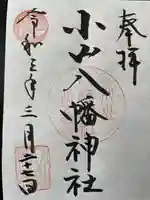 奉拝
小山八幡神社
令和三年三月二十七日